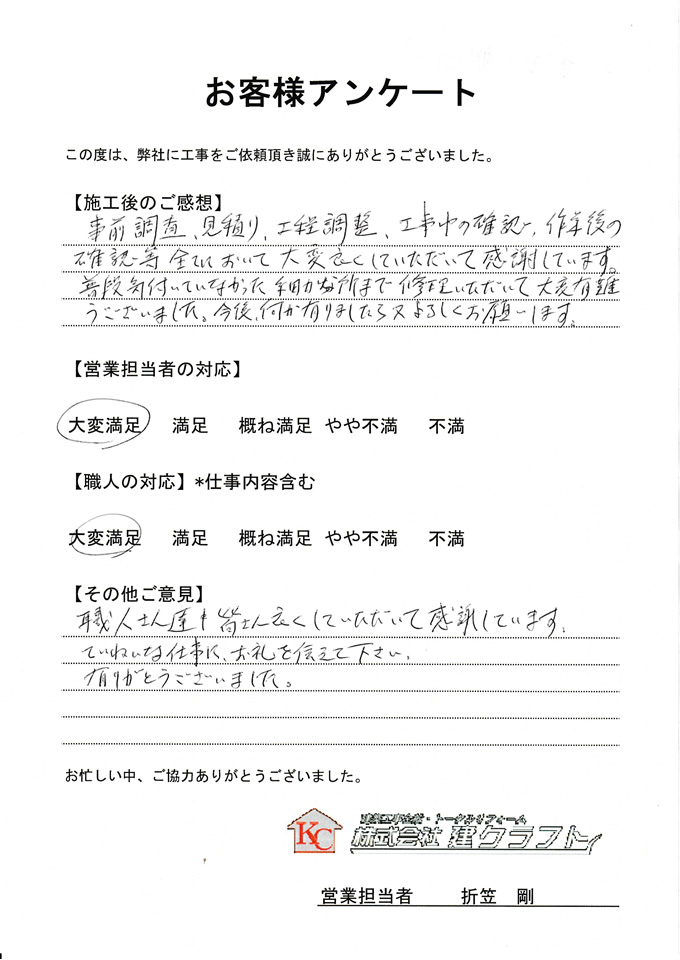 お客様アンケート
この度は、弊社に工事をご依頼頂き誠にありがとうございました。
【施工後のご感想】
事前調査、見積り、工程調整、工事中の確認、作業後の
確認等全てにおいて大変良くしていただいて感謝しています。
普段気付いていなかった細かな所まで修理いただいて大変有難
うございました。今後、何か有りましたら又よろしくお願いします。
【営業担当者の対応】
大変満足 満足 概ね満足 やや不満 不満
【職人の対応】*仕事内容含む
大変満足 満足 概ね満足 やや不満 不満
【その他ご意見】
職人さん達も皆さん良くしていただいて感謝しています。
ていねいな仕事に、お礼を伝えて下さい。
有りがとうございました。
お忙しい中、ご協力ありがとうございました。
KC
トータルリフォーム
株式会社 建クラフト
営業担当者 折笠 剛